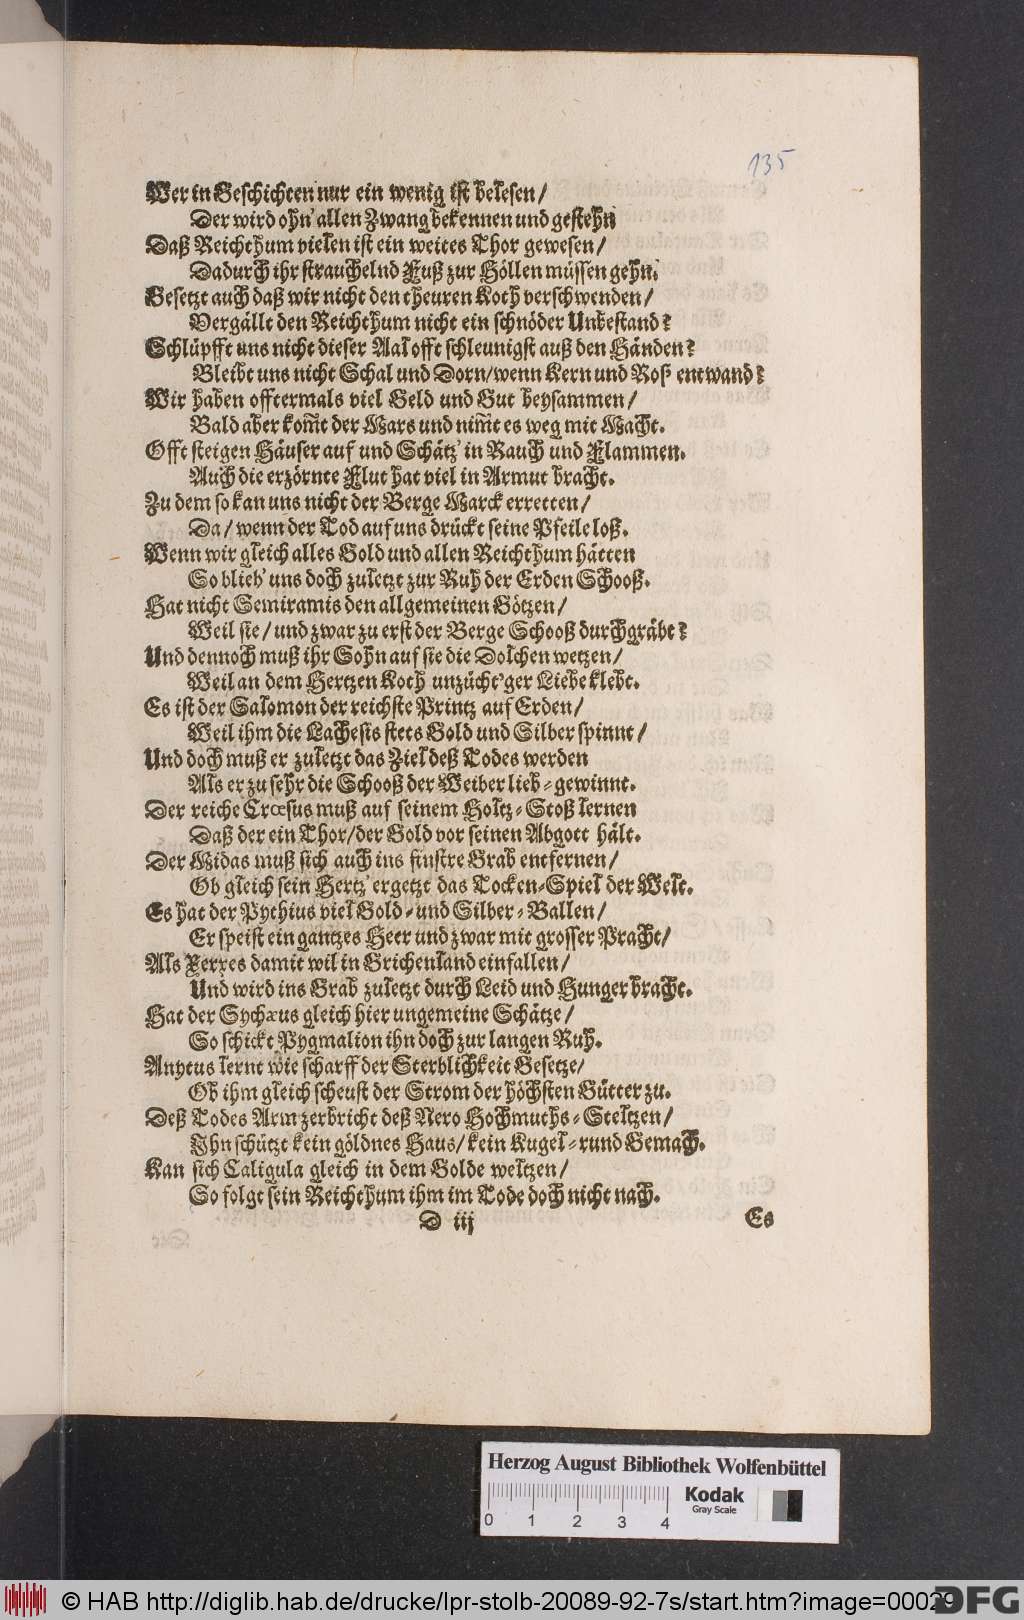 135
Wer in Geschichten nur ein wenig ist belesen /
Der wird ohn' allen Zwang bekennen und gestehn
Daß Reichthum vielen ist ein weites Thor gewesen /
Dadurch ihr strauchelnd Fuß zur Höllen müssen gehn.
Gesetzt auch daß wir nicht den theuren Koth verschwenden /
Vergällt den Reichthum nicht ein schnöder Unbestand?
Schlüpfft uns nicht dieser Aal offt schleunigst auß den Händen?
Bleibt uns nicht Schal und Dorn / wenn Kern und Roß entwand?
Wir haben offtermals viel Geld und Gut beysammen /
Bald aber kom̃t der Mars und nim̃t es weg mit Macht.
Offt steigen Häuser auf und Schätz' in Rauch und Flammen.
Auch die erzörnte Flut hat viel in Armut bracht.
Zu dem so kan uns nicht der Berge Marck erretten /
Da / wenn der Tod auf uns drückt seine Pfeile loß.
Wenn wir gleich alles Gold und allen Reichthum hätten
So blieb' uns doch zuletzt zur Ruh der Erden Schooß.
Hat nicht Semiramis den allgemeinen Götzen /
Weil sie / und zwar zu erst der Berge Schooß durchgräbt?
Und dennoch muß ihr Sohn auf sie die Dolchen wetzen /
Weil an dem Hertzen Koth unzücht'ger Liebe klebt.
Es ist der Salomon der reichste Printz auf Erden /
Weil ihm die Lachesis stets Gold und Silber spinnt /
Und doch muß er zuletzt das Ziel deß Todes werden
Als er zu sehr die Schooß der Weiber lieb-gewinnt.
Der reiche Crœsus muß auf seinem Holtz-Stoß lernen
Daß der ein Thor / der Gold vor seinen Abgott hält.
Der Midas muß sich auch ins finstre Grab entfernen /
Ob gleich sein Hertz' ergetzt das Tocken-Spiel der Welt.
Es hat der Pythius viel Gold- und Silber-Ballen /
Er speist ein gantzes Heer und zwar mit grosser Pracht /
Als Xerxes damit wil in Grichenland einfallen /
Und wird ins Grab zuletzt durch Leid und Hunger bracht.
Hat der Sychæus gleich hier ungemeine Schätze /
So schickt Pygmalion ihn doch zur langen Ruh.
Anytus lernt wie scharff der Sterblichkeit Gesetze /
Ob ihm gleich scheust der Strom der höchsten Gütter zu.
Deß Todes Arm zerbricht deß Nero Hochmuths-Steltzen /
Ihn schützt kein göldnes Haus / kein Kugel-rund Gemach.
Kan sich Caligula gleich in dem Golde weltzen /
So folgt sein Reichthum ihm im Tode doch nicht nach.
D iij Es
Herzog August Bibliothek Wolfenbüttel
Kodak
Gray Scale
0 1 2 3 4
© HAB http://diglib.hab.de/drucke/lpr-stolb-20089-92-7s/start.htm?image=00029
DFG